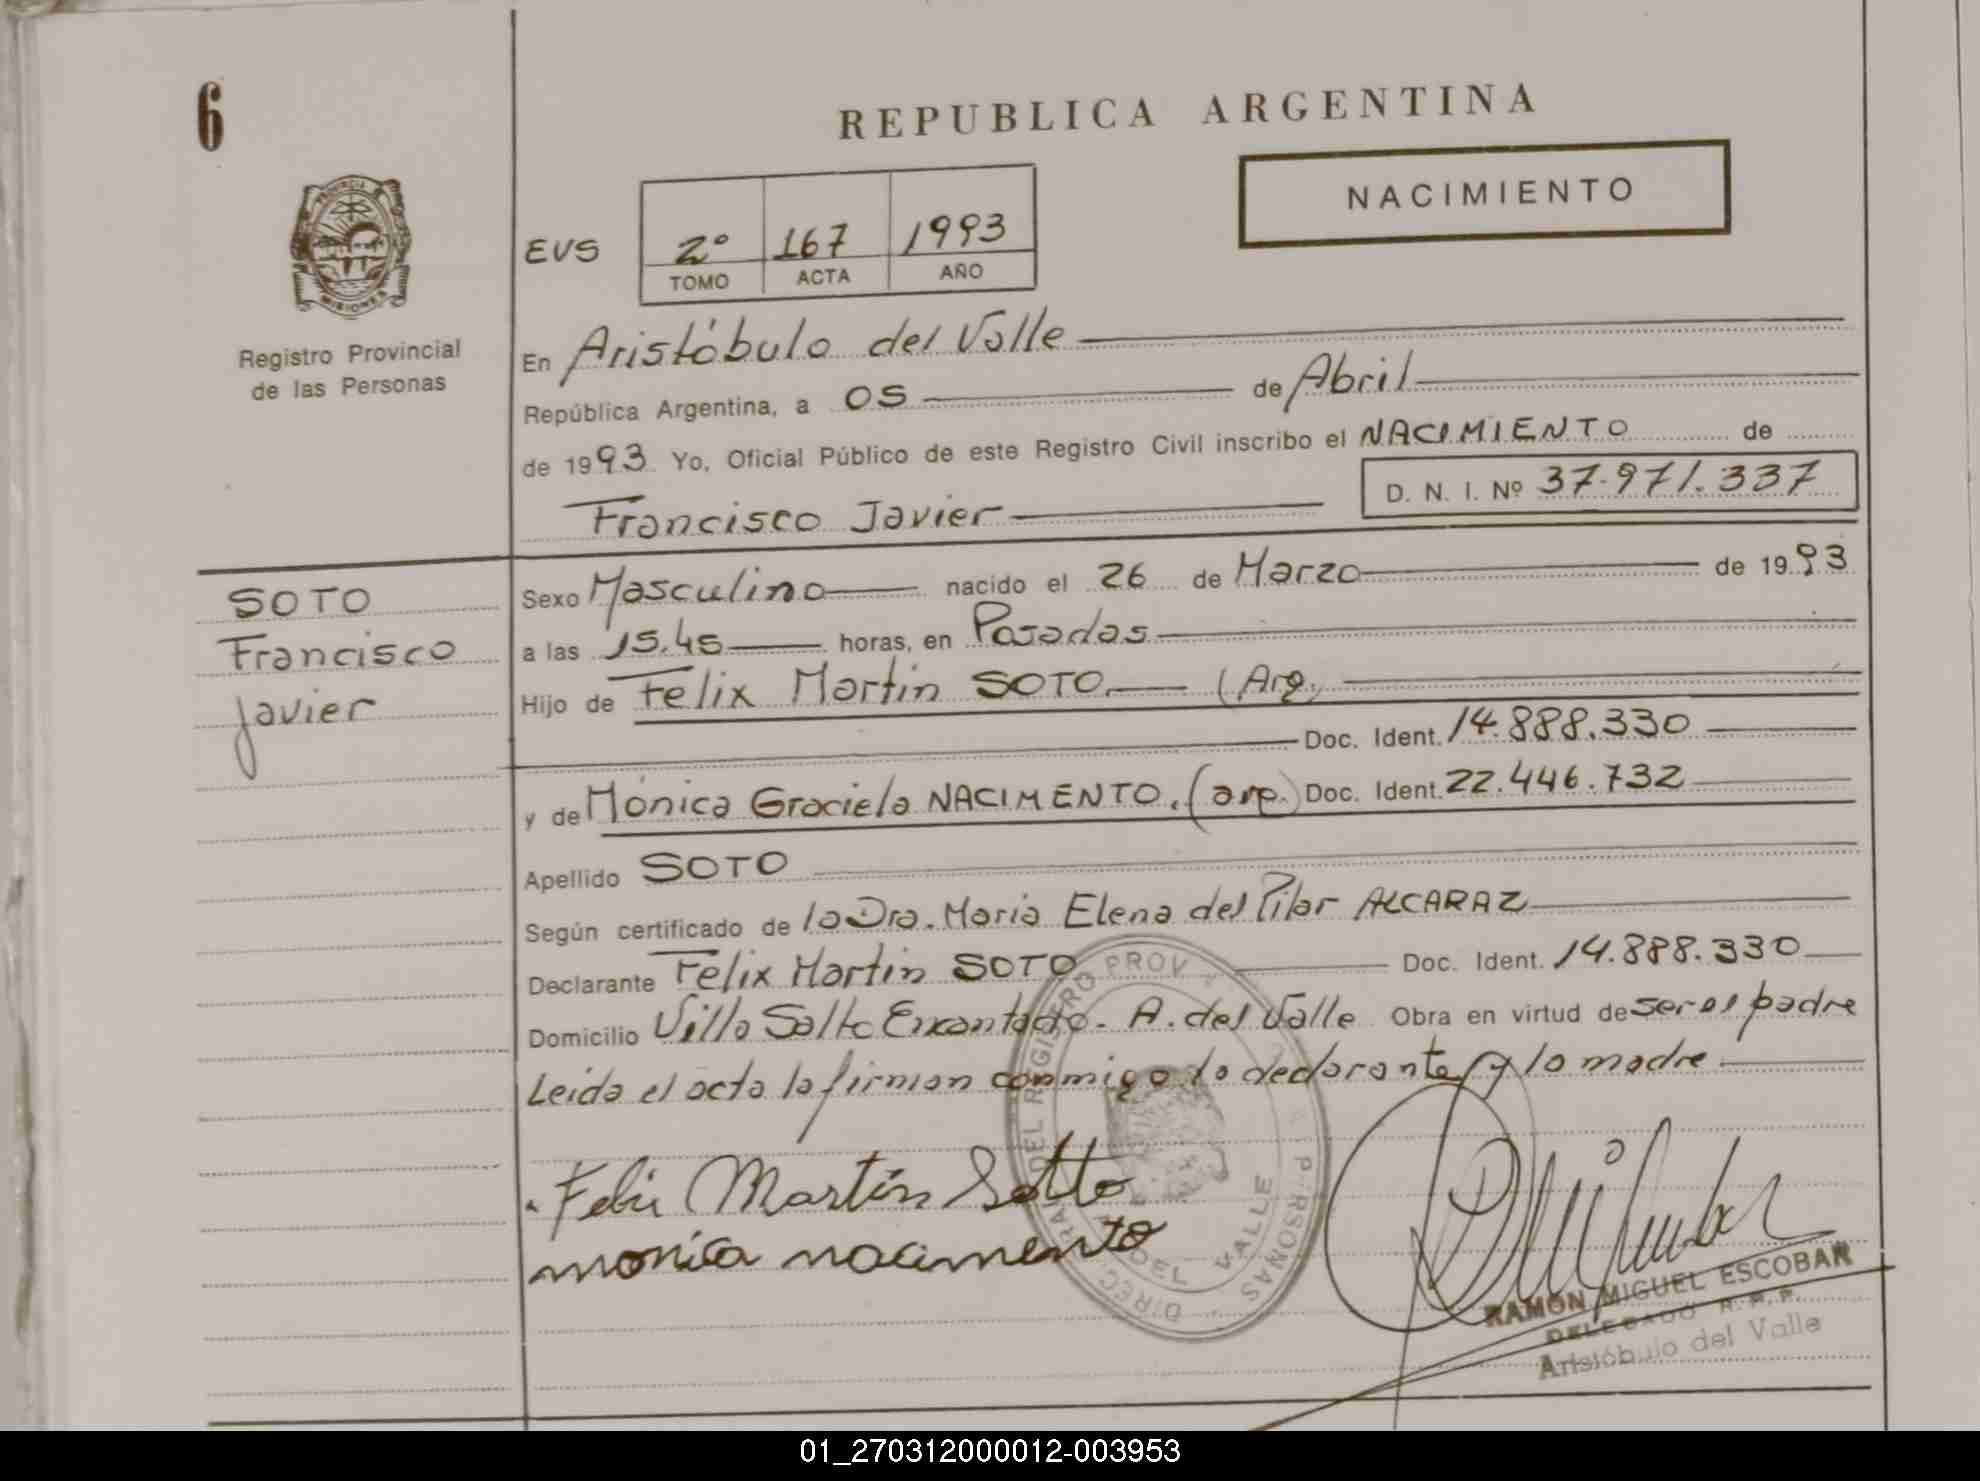 6
REPUBLICA ARGENTINA
NACIMIENTO
PROVINCIA DE
MISIONES
Registro Provincial
de las Personas
EVS
2º 167 1993
TOMO ACTA AÑO
En Aristóbulo del Valle
República Argentina, a 05 de Abril
de 1993 Yo, Oficial Público de este Registro Civil inscribo el NACIMIENTO de
Francisco Javier D. N. I. Nº 37.971.337
SOTO
Francisco
Javier
Sexo Masculino nacido el 26 de Marzo de 1993
a las 15.45 horas, en Posadas
Hijo de Felix Martin SOTO (Arg.
Doc. Ident. 14.888.330
y de Mónica Graciela NACIMENTO. (arg.) Doc. Ident. 22.446.732
Apellido SOTO
Según certificado de la Dra. Maria Elena del Pilar ALCARAZ
Declarante Felix Martin SOTO Doc. Ident. 14.888.330
Domicilio Villa Salto Encantado - A. del Valle Obra en virtud de ser el padre
Leida el acta la firman conmigo lo declarante y la madre
Felix Martín Sotto
monica nacimento
DIREC. GRAL. DEL REGISTRO PROV. PERSONAS
DEL VALLE
RAMON MIGUEL ESCOBAR
DELEGADO R. P. P.
Aristóbulo del Valle
01_270312000012-003953